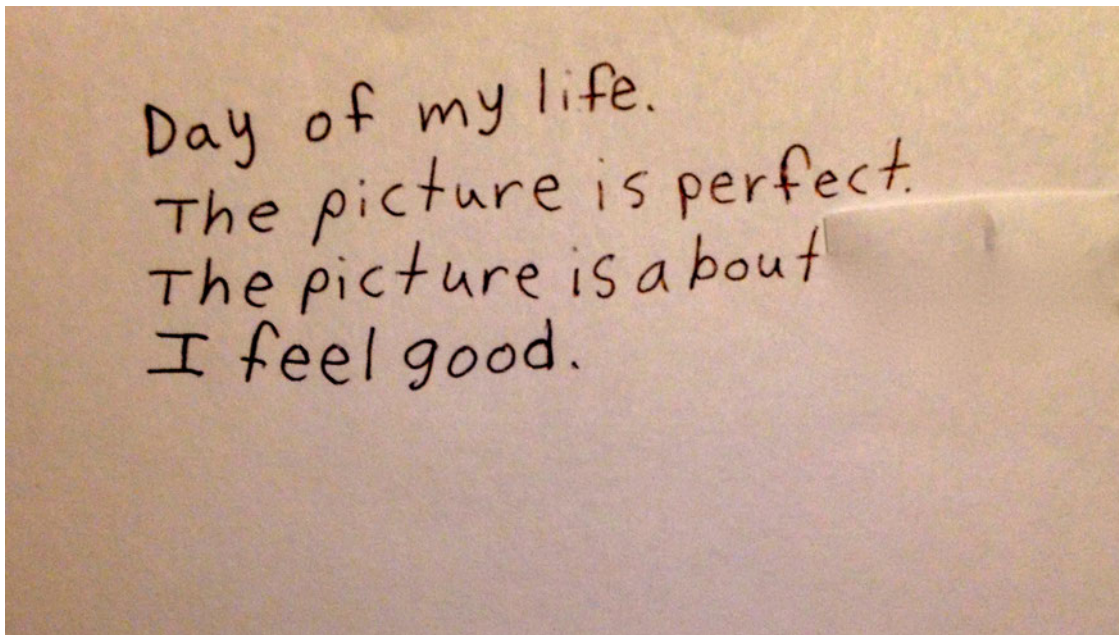 Day of my life.
The picture is perfect.
The picture is about
I feel good.